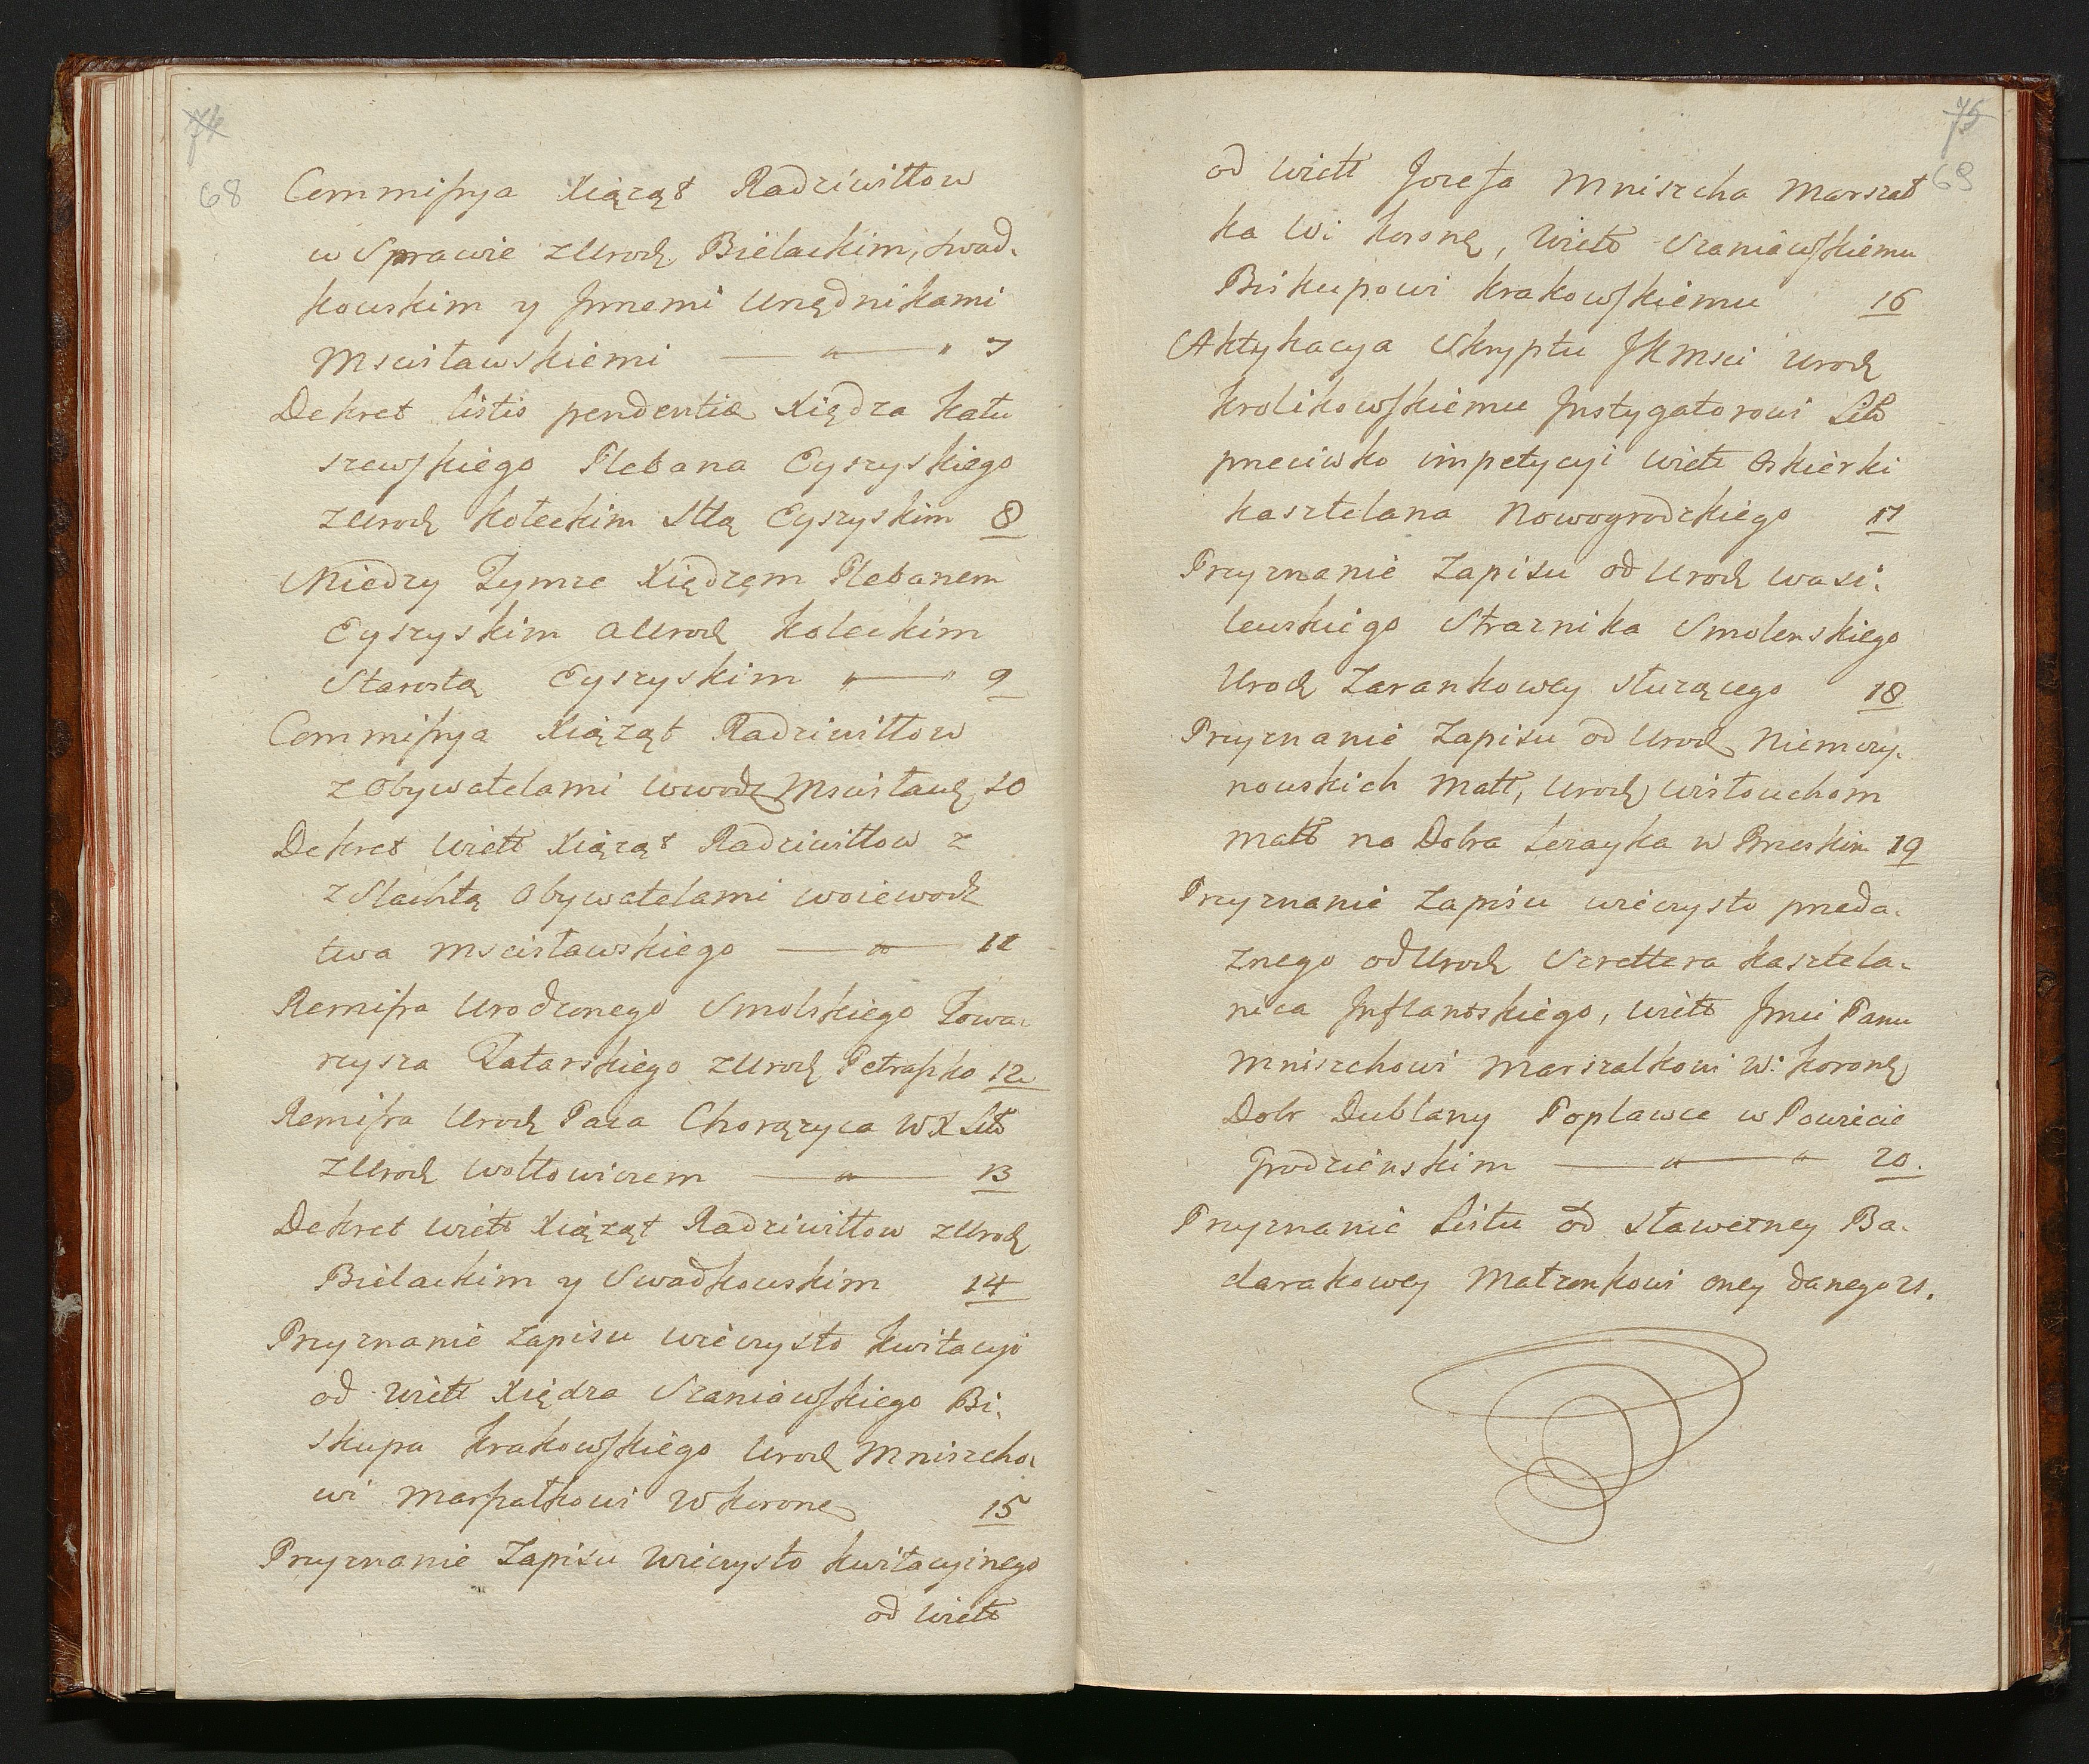 74
68
Commissya Xiąząt Radziwiłłow
w Sprawie z Urodz. Bielackim, Swad-
kowskim y Jnnemi Urzędnikami
Mscisławskiemi 7
Dekret Listis pendentiæ Xiędza Katu
szewskiego Plebana Eyszyskiego
z Urodz Koleckim Sttą Eyszyskim 8
Miedzy Tymże Xiędzem Plebanem
Eyszyskim a Urodz Koleckim
Starostą Eyszyskim 9
Commissya Xiąząt Radziwiłłow
z Obywatelami Wwodz Mscisławę 10
Dekret Wiełł Xiąząt Radziwiłłow z
z Slachtą Obywatelami Woiewodz
twa Mscisławskiego 11
Remissa Urodzonego Smolskiego Towa-
rzysza Tatarskiego z Urodz Petrasko 12
Remissa Urodz Paca Chorązyca WX Litt
z Urodz Wołłowiczem 13
Dekret Wiełł Xiąząt Radziwiłłow z Urodz
Bielackim y Swadkowskim 14
Przyznanie Zapisu Wieczysto Kwitacyi
od Wiełł Xiędza Szaniawskiego Bi-
skupa Krakowskiego Urodz Mniszcho-
wi Marszałkowi W Korone 15
Przyznanie Zapisu Wieczysto Kwitacyinego
od Wiełł
75
69
od Wiełł Jozefa Mniszcha Marszał
ka W: Koronę, Wiełł Szaniawskiemu
Biskupowi Krakowskiemu 16
Aktykacya Skryptu JKMsci Urodz
Krolikowskiemu Jnstygatorowi Litt
przeciwko impetycyi Wiełł Oskierki
Kasztelana Nowogrodzkiego 17
Przyznanie Zapisu od Urodz Wasi-
lewskiego Straznika Smolenskiego
Urodz Zarankowey słuzącego 18
Przyznanie Zapisu od Urodz Niemczy-
nowskich Małł, Urodz Wisłouchom
Małł na Dobra Lezayka w Brzeskim 19
Przyznanie Zapisu wieczysto przeda-
znego od Urodz Szrettera Kasztela-
nica Jnflantskiego, Wiełł Jmci Panu
Mniszchowi Marszalkowi W: Koronę
Dobr Dublany Poplawce w Powiecie
Grodzienskim 20.
Przyznanie Listu od Sławetney Ba-
darakowey Małzonkowi oney danego 21.